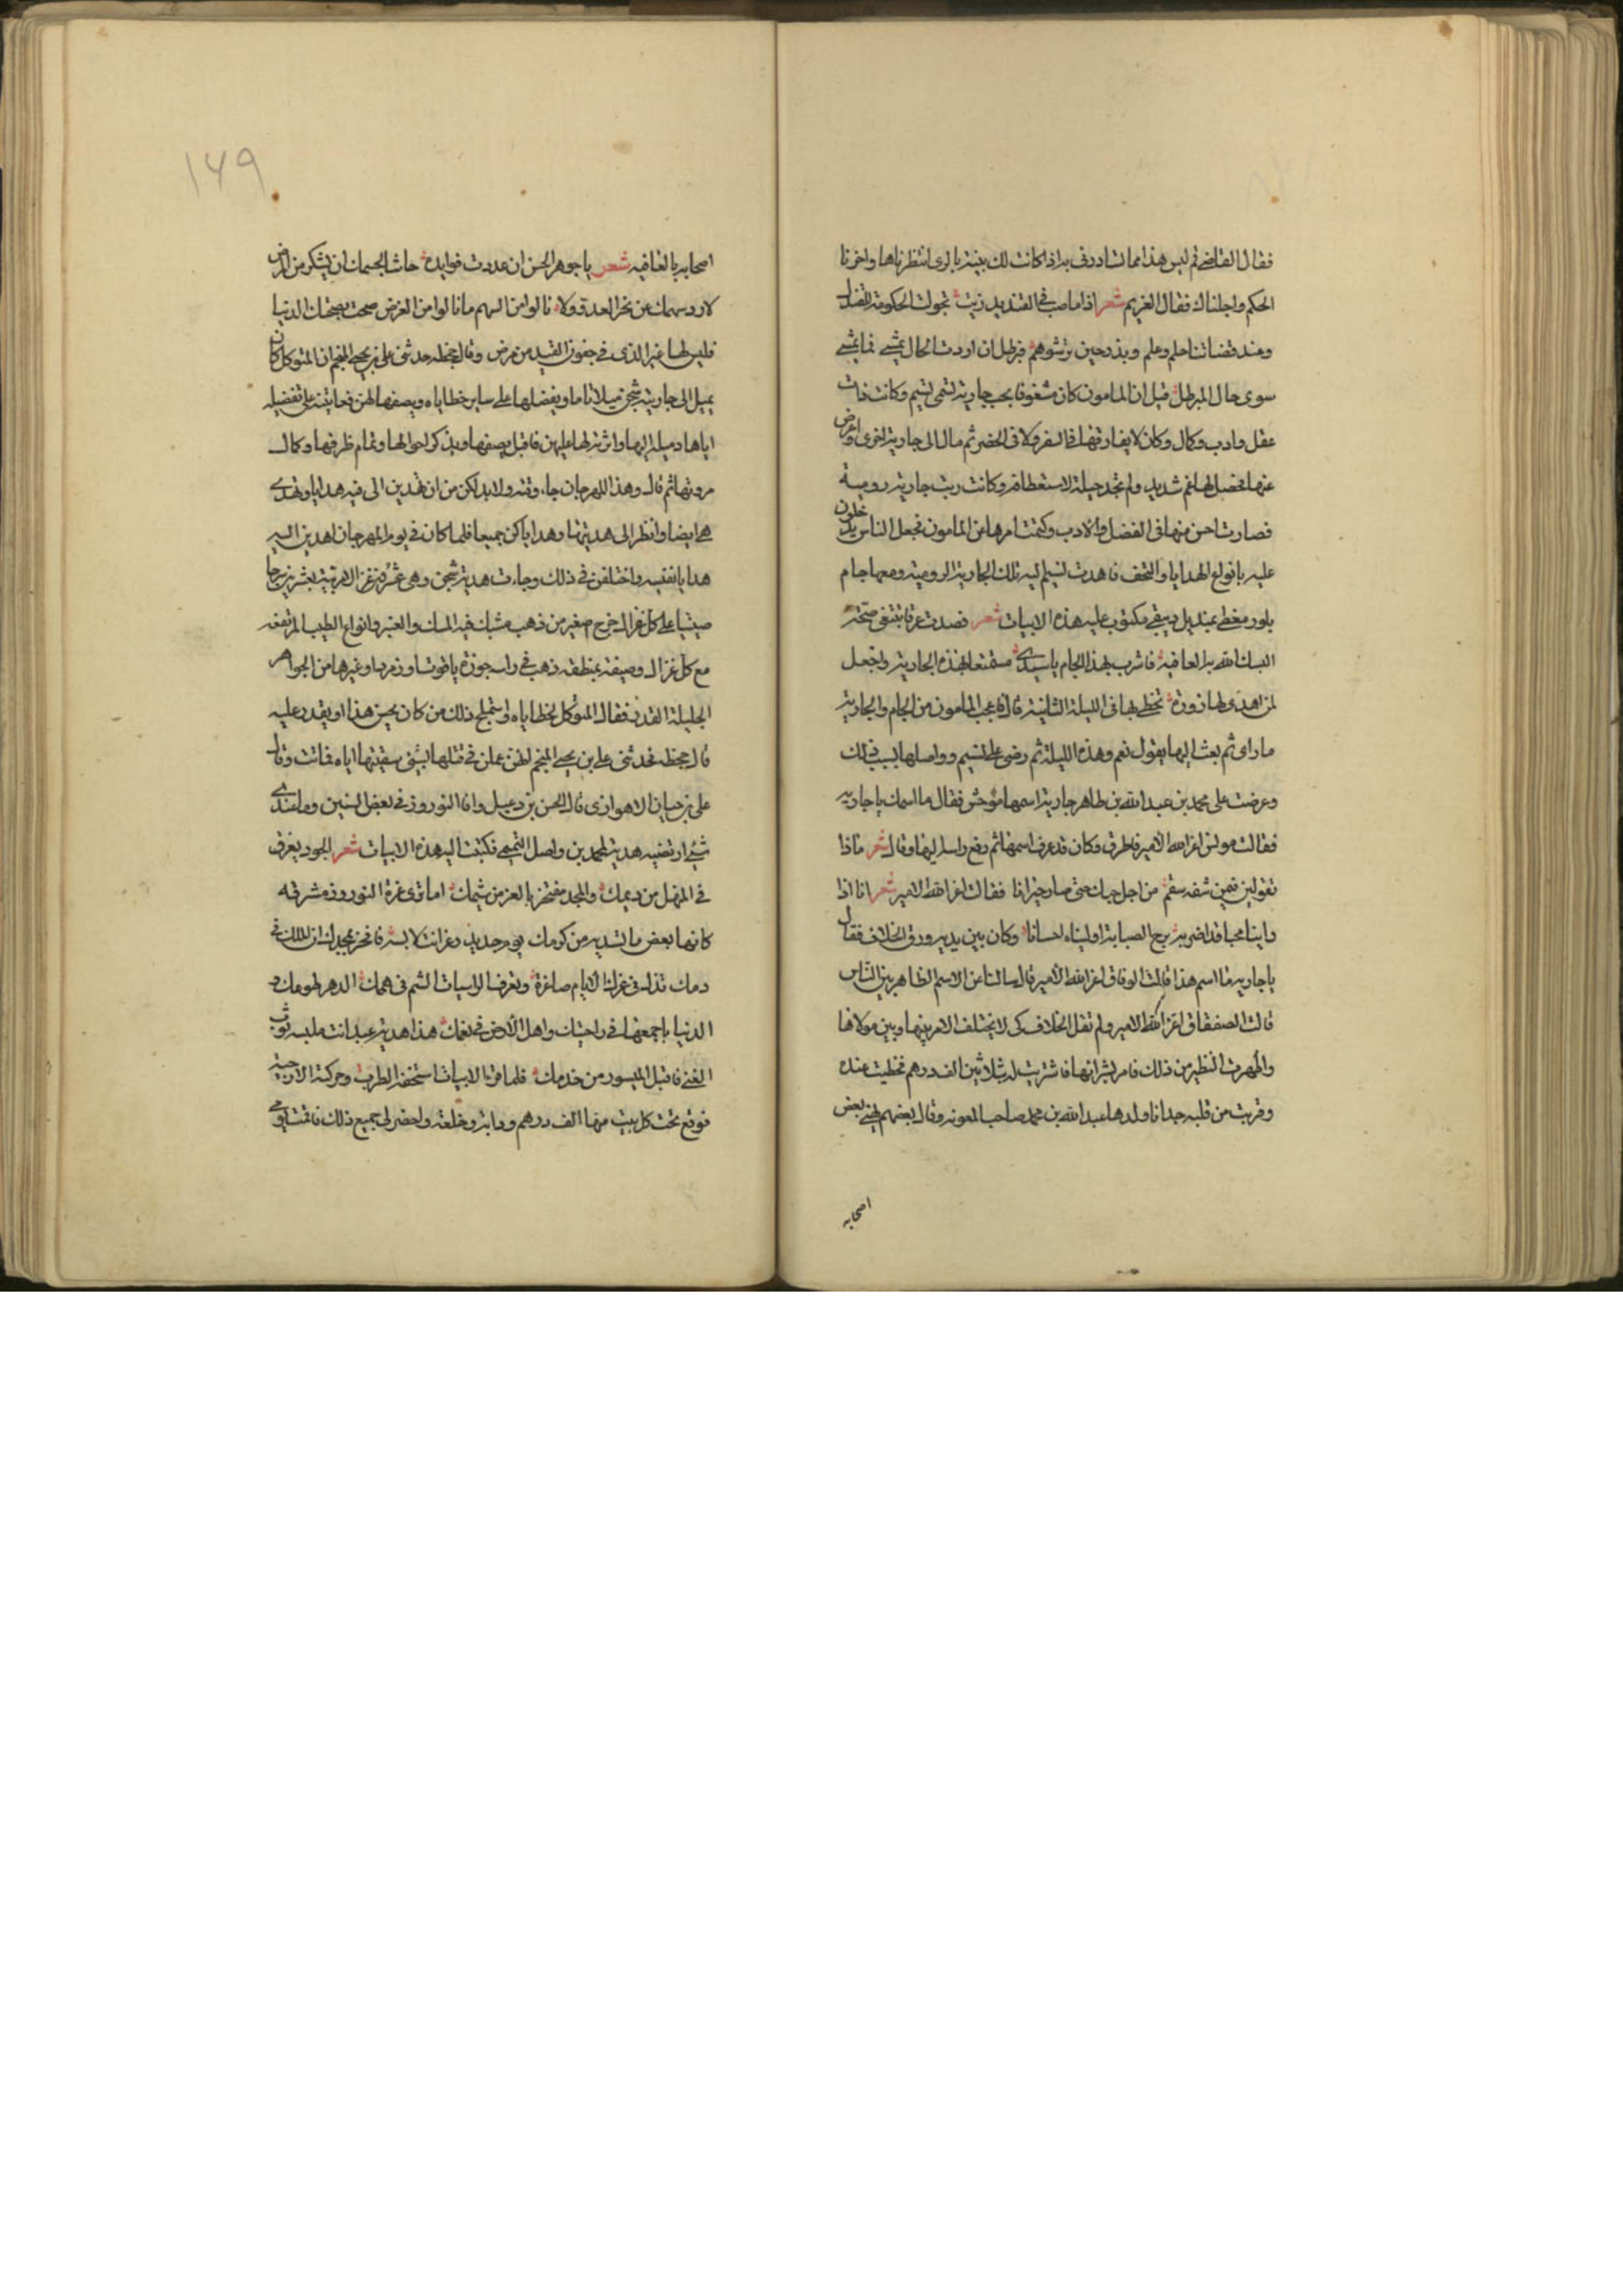 فقال القاضي قم ليس هذا مما تبادرني به اذا كانت لك بينة بالري انتظرناها واخرنا
الحكم واجلناك فقال الغريم شعر اذا ما صب في القنديل زيت تحولت الحكومة للقنديل
وعند قضاتنا حلم وعلم وبذر حين ترشوهم فبرطل ان اردت الحال يمشي فما يمشي
سوى حال المبرطل قيل ان المامون كان مشغوفا بحب جارية تسمى نسيم وكانت ذات
عقل وادب وكمال وكان لا يفارقها في السفر ولا في الحضر ثم مال الى جارية اخرى واعرض
عنها فحصل لها غم شديد ولم تجد حيلة لاستعطافه وكانت ربت جارية رومية
فصارت احسن منها في الفضل والادب وكتمت امرها من المامون فجعل الناس يدخلون
عليه بانواع الهدايا والتحف فاهدت نسيم له تلك الجارية الرومية ومعها جام
بلور مغطى بمنديل دبيقي مكتوب عليه هذه الابيات شعر فصدت عرقا تبتغي صحة
البسك الله به العافية فاشرب بهذا الجام يا سيدي مستمتعا بهذه الجارية واجعل
لمن اهدى لها زورة تحظى بها في الليلة الثانية قال فاعجب المامون من الجام والجارية
ما راى ثم بعث اليها يقول نعم وهذه الليلة ثم رضي على نسيم وواصلها بسبب ذلك
وعرضت على محمد بن عبد الله بن طاهر جارية اسمها مؤنس فقال ما اسمك يا جارية
فقالت مونس اعز الله الامير فاطرق وكان قد عرف اسمها ثم رفع راسه اليها وقال شعر ماذا
تقولين فيمن شفه سقم من اجل حبك حتى صار حيرانا فقالت اعز الله الامير شعر انا اذا
راينا محبا قد اضر به برح الصبابة اوليناه احسانا وكان بين يديه ورق الخلاف فقال
يا جارية ما اسم هذا قالت الوفاق اعز الله الامير قال سالتنا عن الاسم الظاهر بين الناس
قالت الصفصاف اعز الله الامير ولم تقل الخلاف كي لا يختلف الامر بينها وبين مولاها
واظهرت النظير من ذلك فامر بشرائها فاشتريت له بثلاثين الف درهم فحظيت عنده
وقربت من قلبه جدا فاولدها عبد الله بن محمد صاحب المعونه وقال بعضهم يهني بعض
اصحابه
١٤٩
اصحابه بالعافيه شعر يا جوهر الحسن ان عددت فوايده حاشا لجسمك ان يشكو من المرض
لا رد سهمك عن نحر العدو ولا نالوا من السهم ما نالوا من الغرض صحت بصحتك الدنيا
فليس لها غير الذي في جفون الغيد من مرض وقال جحظه حدثني علي بن يحيى المنجم ان المتوكل كان
يميل الى جاريته شجن ميلا تاما ويفضلها على ساير حظاياه ويصفها لهن فعاتبنه على تفضيله
اياها وميله اليها واثرته لها عليهن فاقبل يصفها ويذكر احوالها وتمام ظرفها وكمال
مروتها ثم قال وهذا المهرجان جاء وقته ولا بد لكن من ان تهدين الى فيه هدايا وتهدي
هي ايضا وانظر الى هديتها وهداياكن جميعا فلما كان في يوم المهرجان اهدين اليه
هدايا نفيسه واختلفن في ذلك وجاءت هدية شجن وهي عشرون غزالا تربية بعشرين سرجا
صينيا على كل غزال خرج صغير من ذهب مشبك فيه المسك والعنبر وانواع الطيب المرتفعه
مع كل غزال وصيفة بمنطقة ذهب في راسه جوزة ياقوت او زمرد او غيرها من الجواهر
الجليلة القدر فقال المتوكل لحظاياه وقد استملح ذلك من كان يحسن هذا او يقدر عليه
قال جحظه فحدثني علي بن يحيى المنجم انهن عملن في قتلها بشيء سقينها اياه فماتت وقال
علي بن حسان الاهوازي قال الحسن بن دعبل وافا النوروز في بعض السنين وما عندي
شيء ارتضيه هدية لمحمد بن واصل التميمي فكتبت اليه هذه الابيات شعر الجود يغرق
في المنهل من ديمك والمجد مفتخر بالعز من شيمك اما ترى غرة النوروز مشرقة
كانها بعض ما تسديه من كرمك يوم جديد وعز انت لابسه فافخر بمجدك ان الملك في
دمك تذل في عزك الايام صاغرة وتعرف الراسيات الشم في هممك الدهر طوعك و
الدنيا باجمعها في راحتيك واهل الارض في نعمك هذا هدية عبد انت ملبسه ثوب
الغنى فاقبل الميسور من خدمك فلما قرا الابيات استخفه الطرب وحركته الاريحية
فوقع تحت كل بيت منها الف درهم ودابة وخلعة واحضر لي جميع ذلك فاقمت يومي